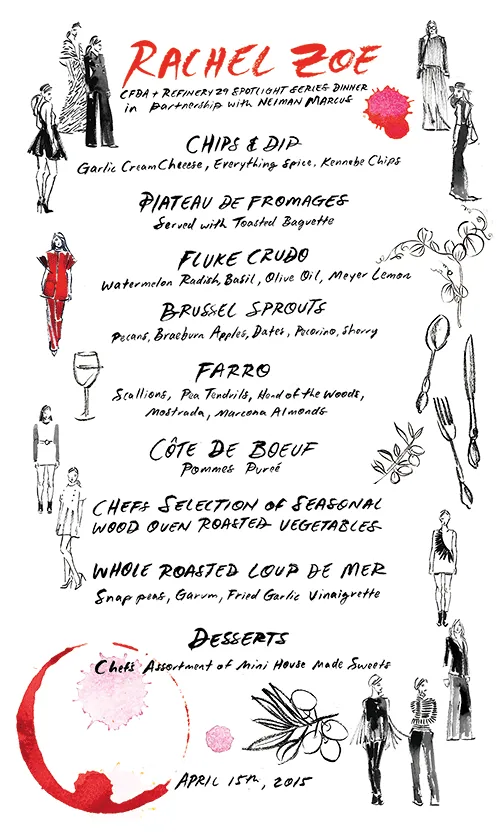 RACHEL ZOE
CFDA + REFINERY 29 SPOTLIGHT SERIES DINNER
in partnership with NEIMAN MARCUS
CHIPS & DIP
Garlic Cream Cheese, Everything Spice, Kennebe Chips
PLATEAU DE FROMAGES
Served with Toasted Baguette
FLUKE CRUDO
Watermelon Radish, Basil, Olive Oil, Meyer Lemon
BRUSSEL SPROUTS
Pecans, Braeburn Apples, Dates, Pecorino, Sherry
FARRO
Scallions, Pea Tendrils, Hend of the Woods,
Mostrada, Marcona Almonds
CÔTE DE BOEUF
Pommes Pureé
CHEFS SELECTION of SEASONAL
WOOD OVEN ROASTED VEGETABLES
WHOLE ROASTED LOUP DE MER
Snap peas, Garum, Fried Garlic Vinaigrette
DESSERTS
Chefs Assortment of Mini House Made Sweets
APRIL 15TH, 2015